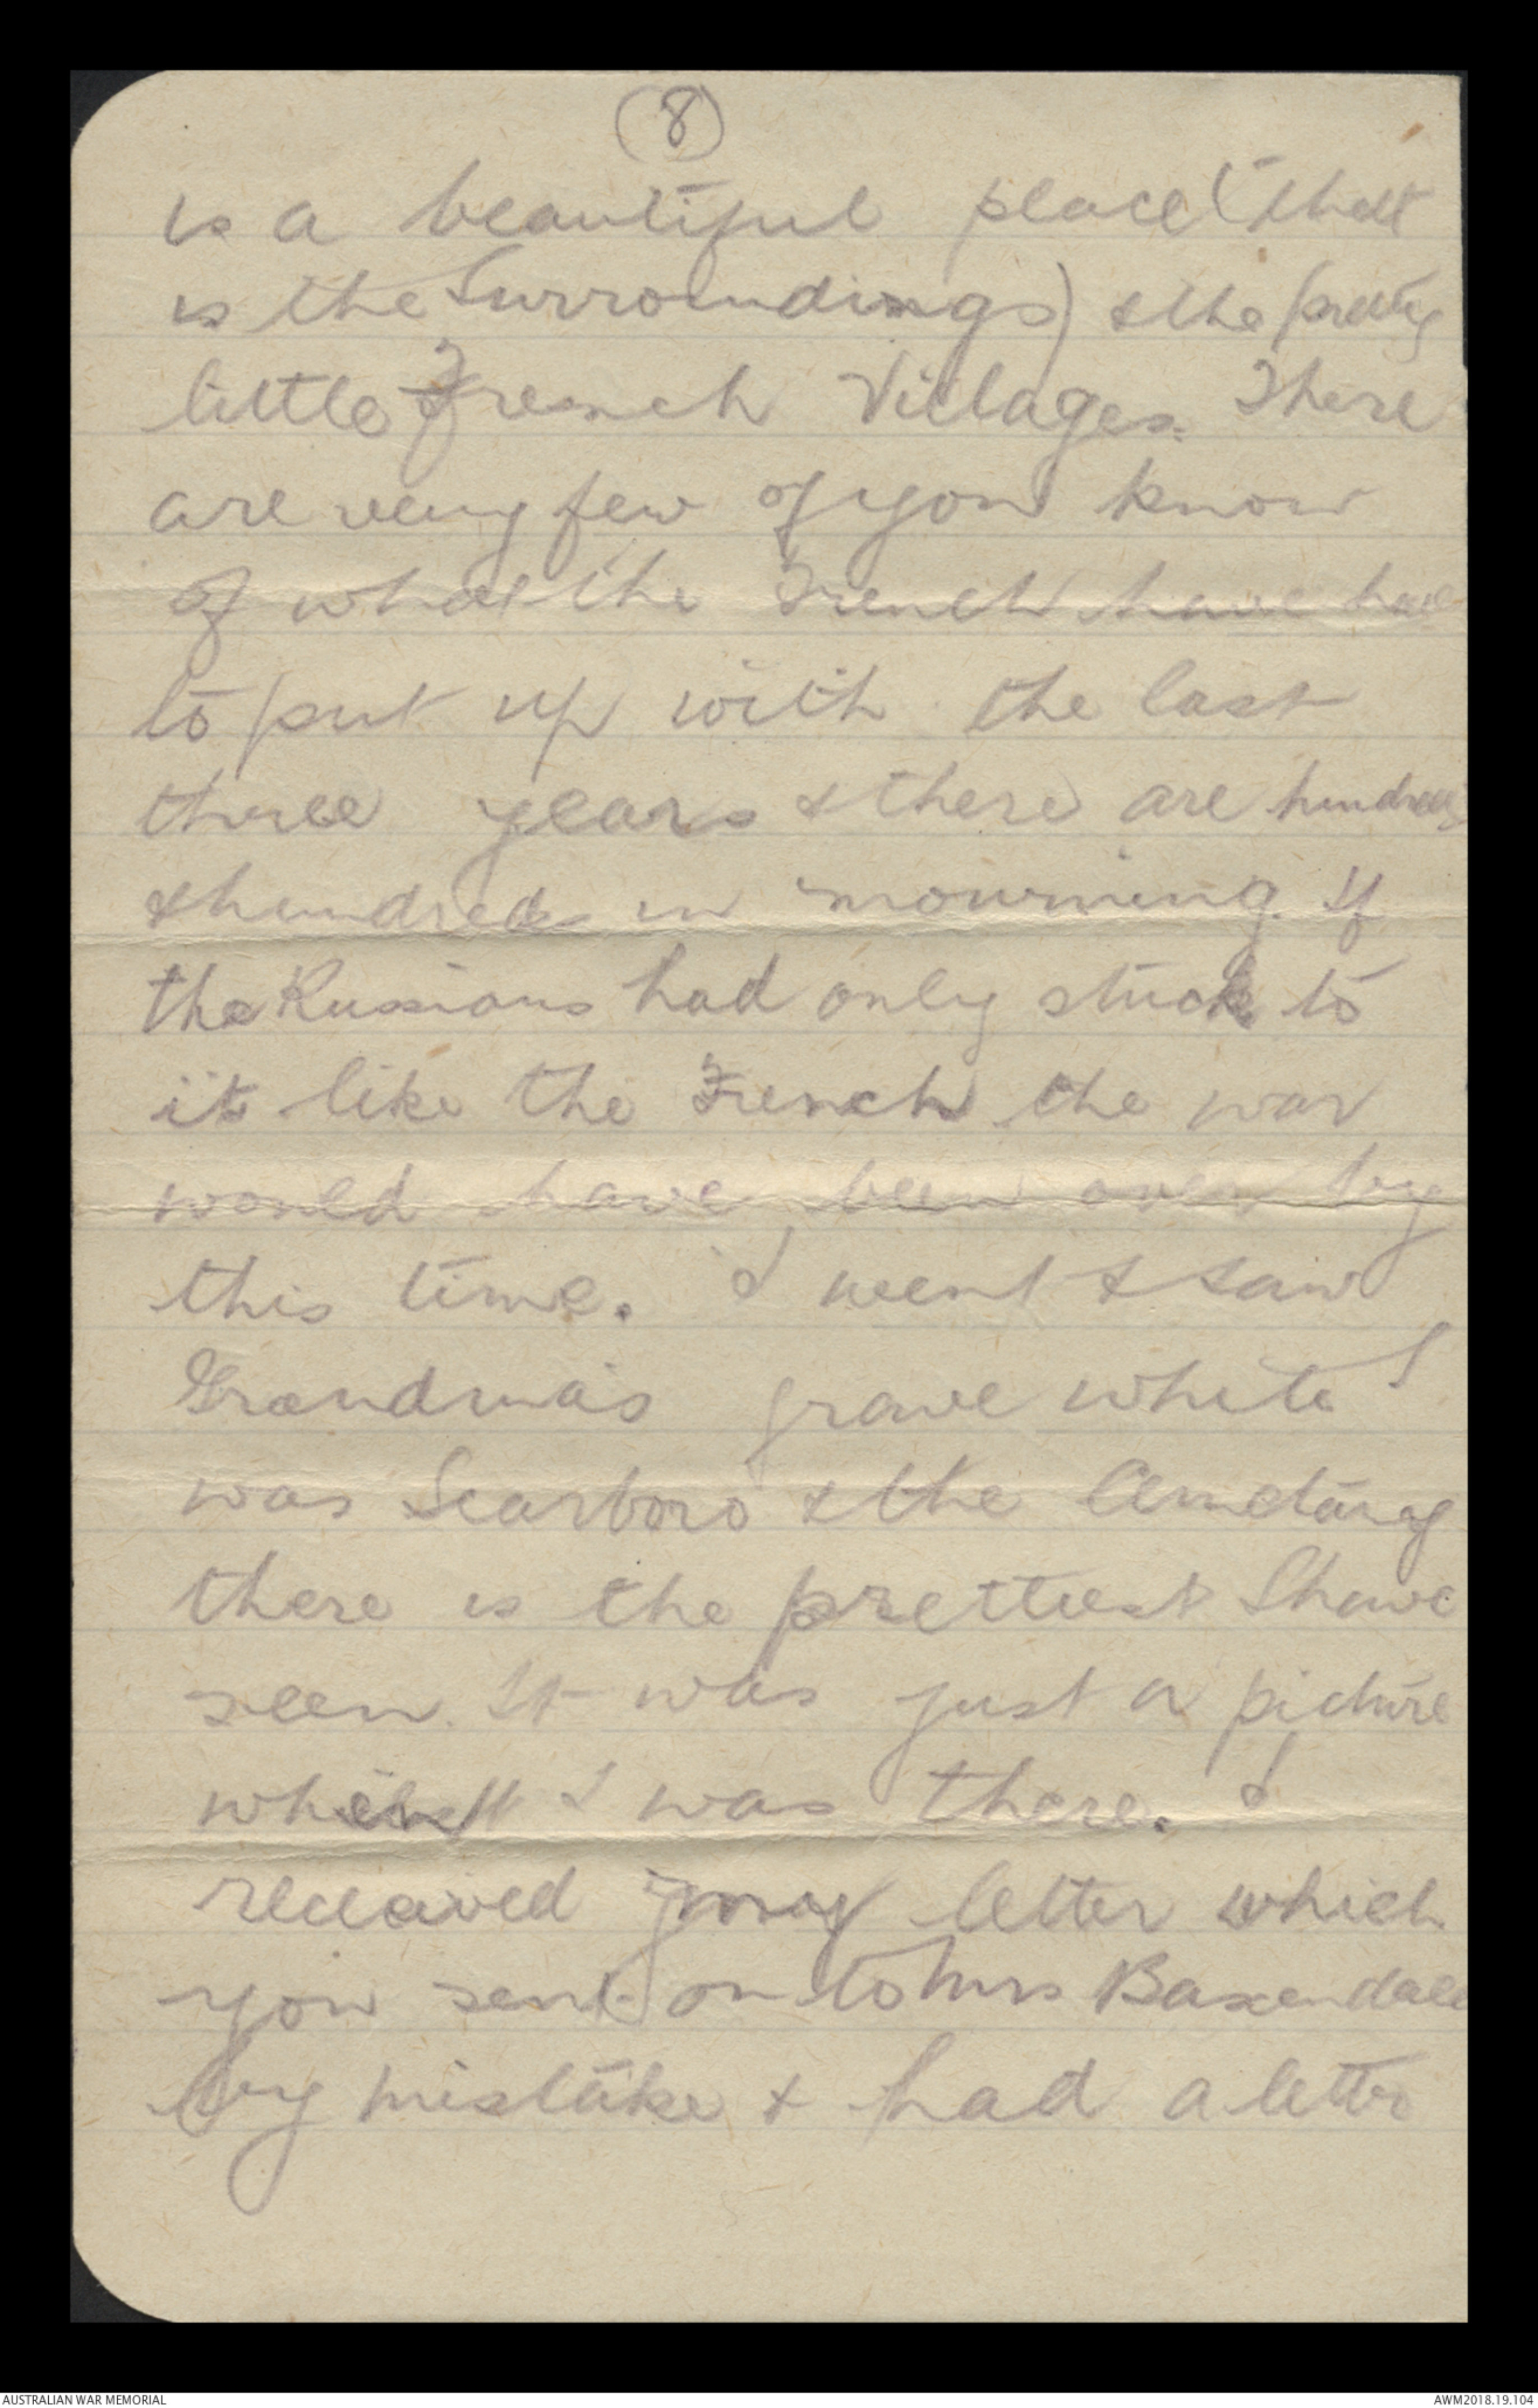 (8)
is a beautiful place (that
is the Surroundings) & the pretty
little French Villages. There
are very few of you know
of what the French have had
to put up with the last
three years & there are hundreds
& hundreds in mourning. If
the Russians had only stuck to
it like the French the war
would have been over by
this time. I went & saw
Grandma's grave while I
was Scarboro & the Cemetary
there is the prettiest I have
seen. It was just a picture
when I was there. I
received your letter which
you sent on to Mrs Baxendale
by mistake & had a letter
AUSTRALIAN WAR MEMORIAL
AWM2018.19.104